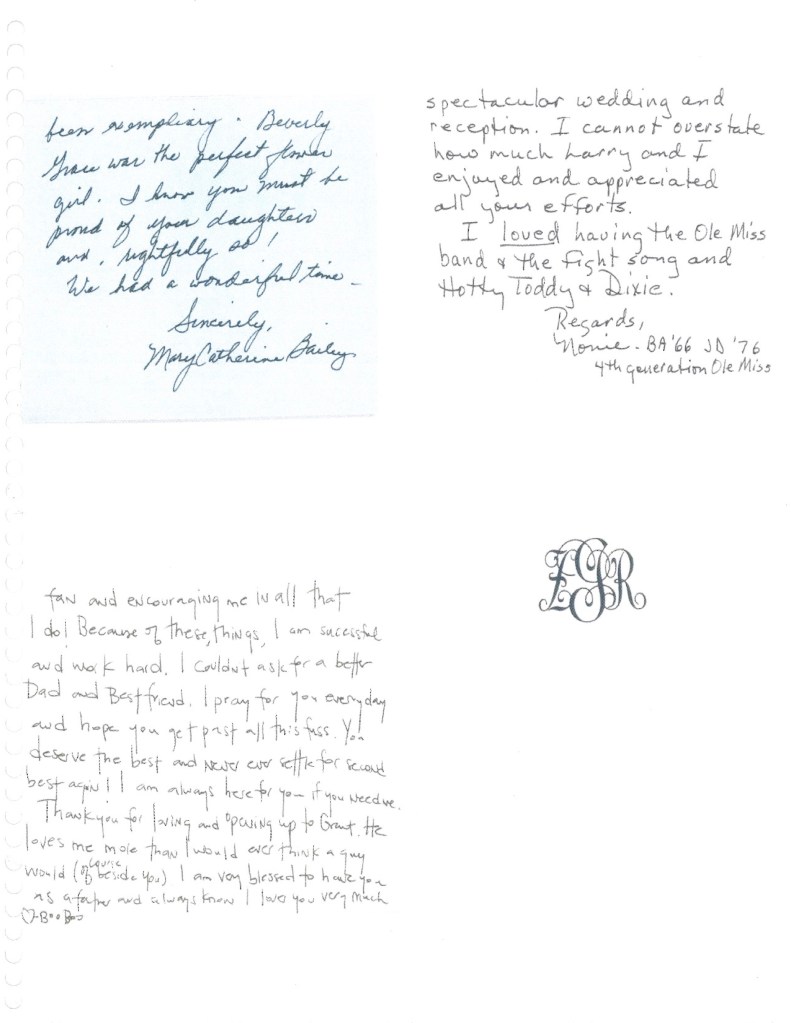 been exempliary. Beverly
Grace was the perfect flower
girl. I know you must be
proud of your daughters
and, rightfully so!
We had a wonderful time -
Sincerely,
Mary Catherine Bailey
spectacular wedding and
reception. I cannot overstate
how much Larry and I
enjoyed and appreciated
all your efforts.
I loved having the Ole Miss
band & the fight song and
Hotty Toddy & Dixie.
Regards,
Nonie - BA '66 JD '76
4th generation Ole Miss
fan and encouraging me in all that
I do! Because of these things, I am sucessful
and work hard. I couldnt ask for a better
Dad and Best friend. I pray for you everyday
and hope you get past all this fuss. You
deserve the best and never ever settle for second
best again! I am always here for you if you need me.
Thank you for loving and opening up to Grant. He
loves me more than I would ever think a guy
would (of course beside you). I am very blessed to have you
as a father and always know I love you very much
♡-Boo Boo
EGR